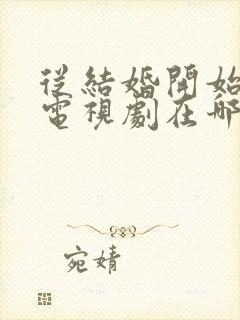 從結婚開始
電視劇在哪
宛婧